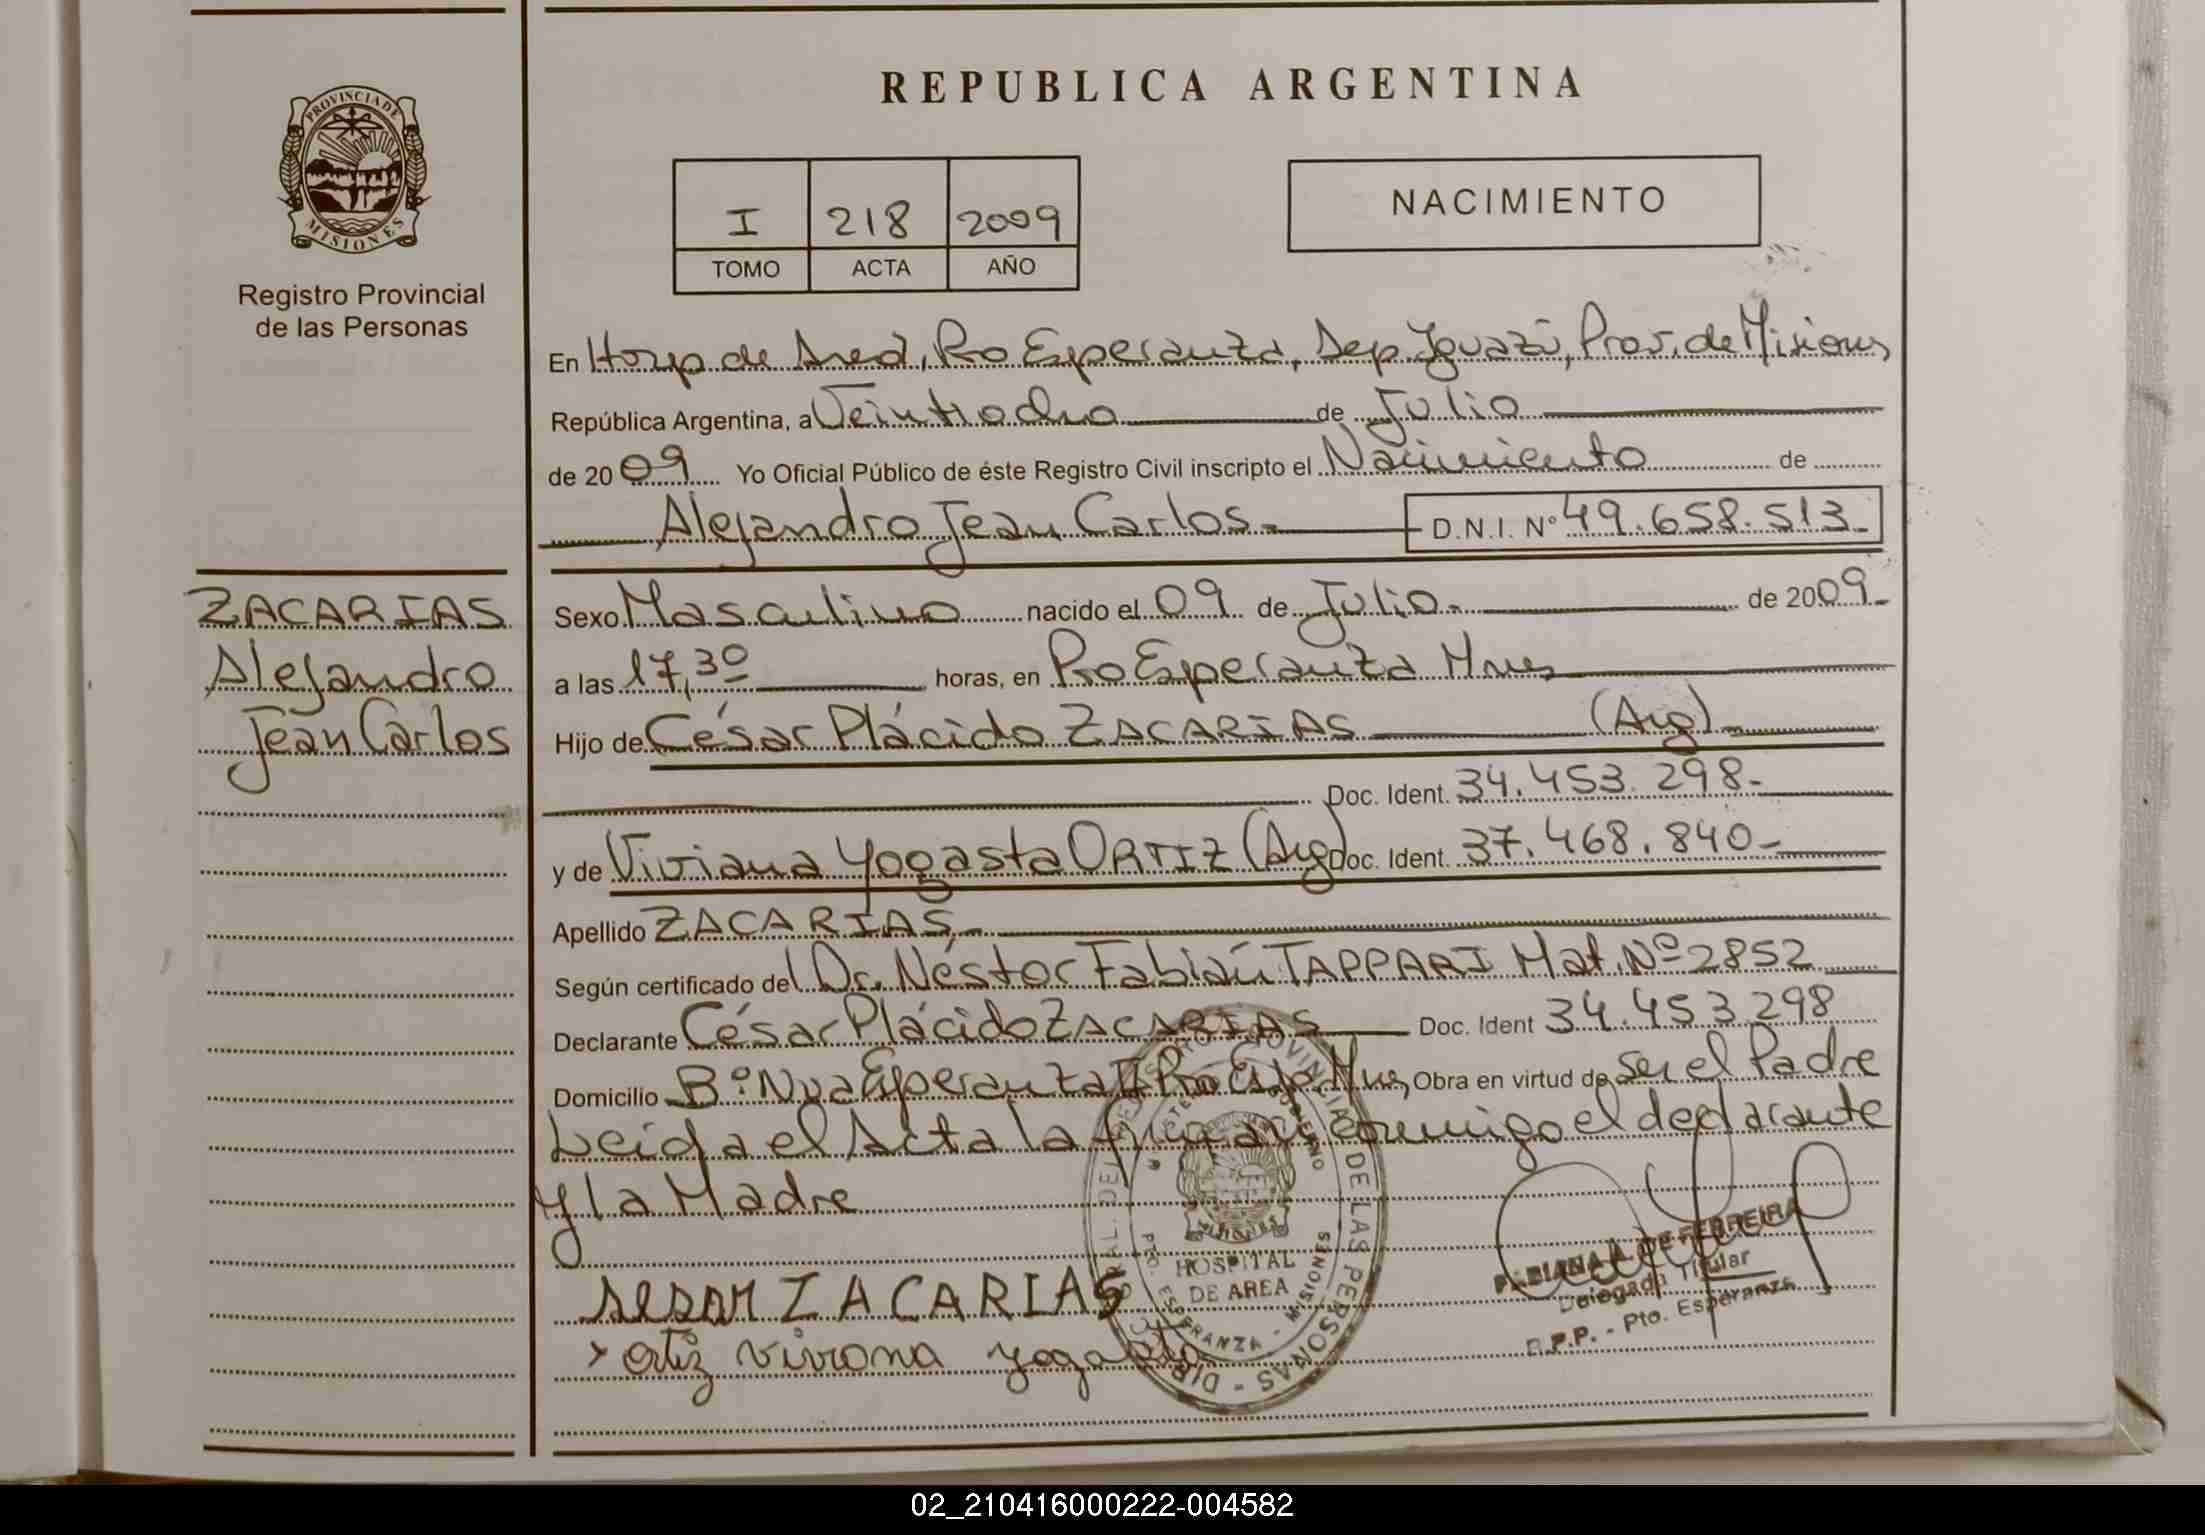 REPUBLICA ARGENTINA
PROVINCIA DE
MISIONES
Registro Provincial
de las Personas
I 218 2009
TOMO ACTA AÑO
NACIMIENTO
En Hosp de Area, Pto Esperanza, Dep. Iguazú, Prov. de Misiones
República Argentina, a Veintiocho de Julio
de 2009 Yo Oficial Público de éste Registro Civil inscripto el Nacimiento de
Alejandro Jean Carlos.- D.N.I. Nº 49.658.513-
ZACARIAS
Alejandro
Jean Carlos
Sexo Masculino nacido el 09 de Julio.- de 2009.-
a las 17,30 horas, en Pto Esperanza Mnes
Hijo de César Plácido ZACARIAS (Arg)-
Doc. Ident. 34.453.298-
y de Viviana Yogasta ORTIZ (Arg) Doc. Ident. 37.468.840-
Apellido ZACARIAS,-
Según certificado del Dr. Néstor Fabián TAPPARI Mat. Nº 2852
Declarante César Plácido ZACARIAS Doc. Ident 34.453.298
Domicilio Bº Nva Esperanza II Pto Esp. Mnes, Obra en virtud de ser el Padre
Leida el Acta la firman conmigo el declarante
y la Madre
sesar ZACARIAS
ortiz viviana yogasta
HOSPITAL
DE AREA
PTO. ESPERANZA - MISIONES
DE LAS PERSONAS
FABIANA A. DE FERREIRA
Delegada Titular
R.P.P. - Pto. Esperanza
02_210416000222-004582